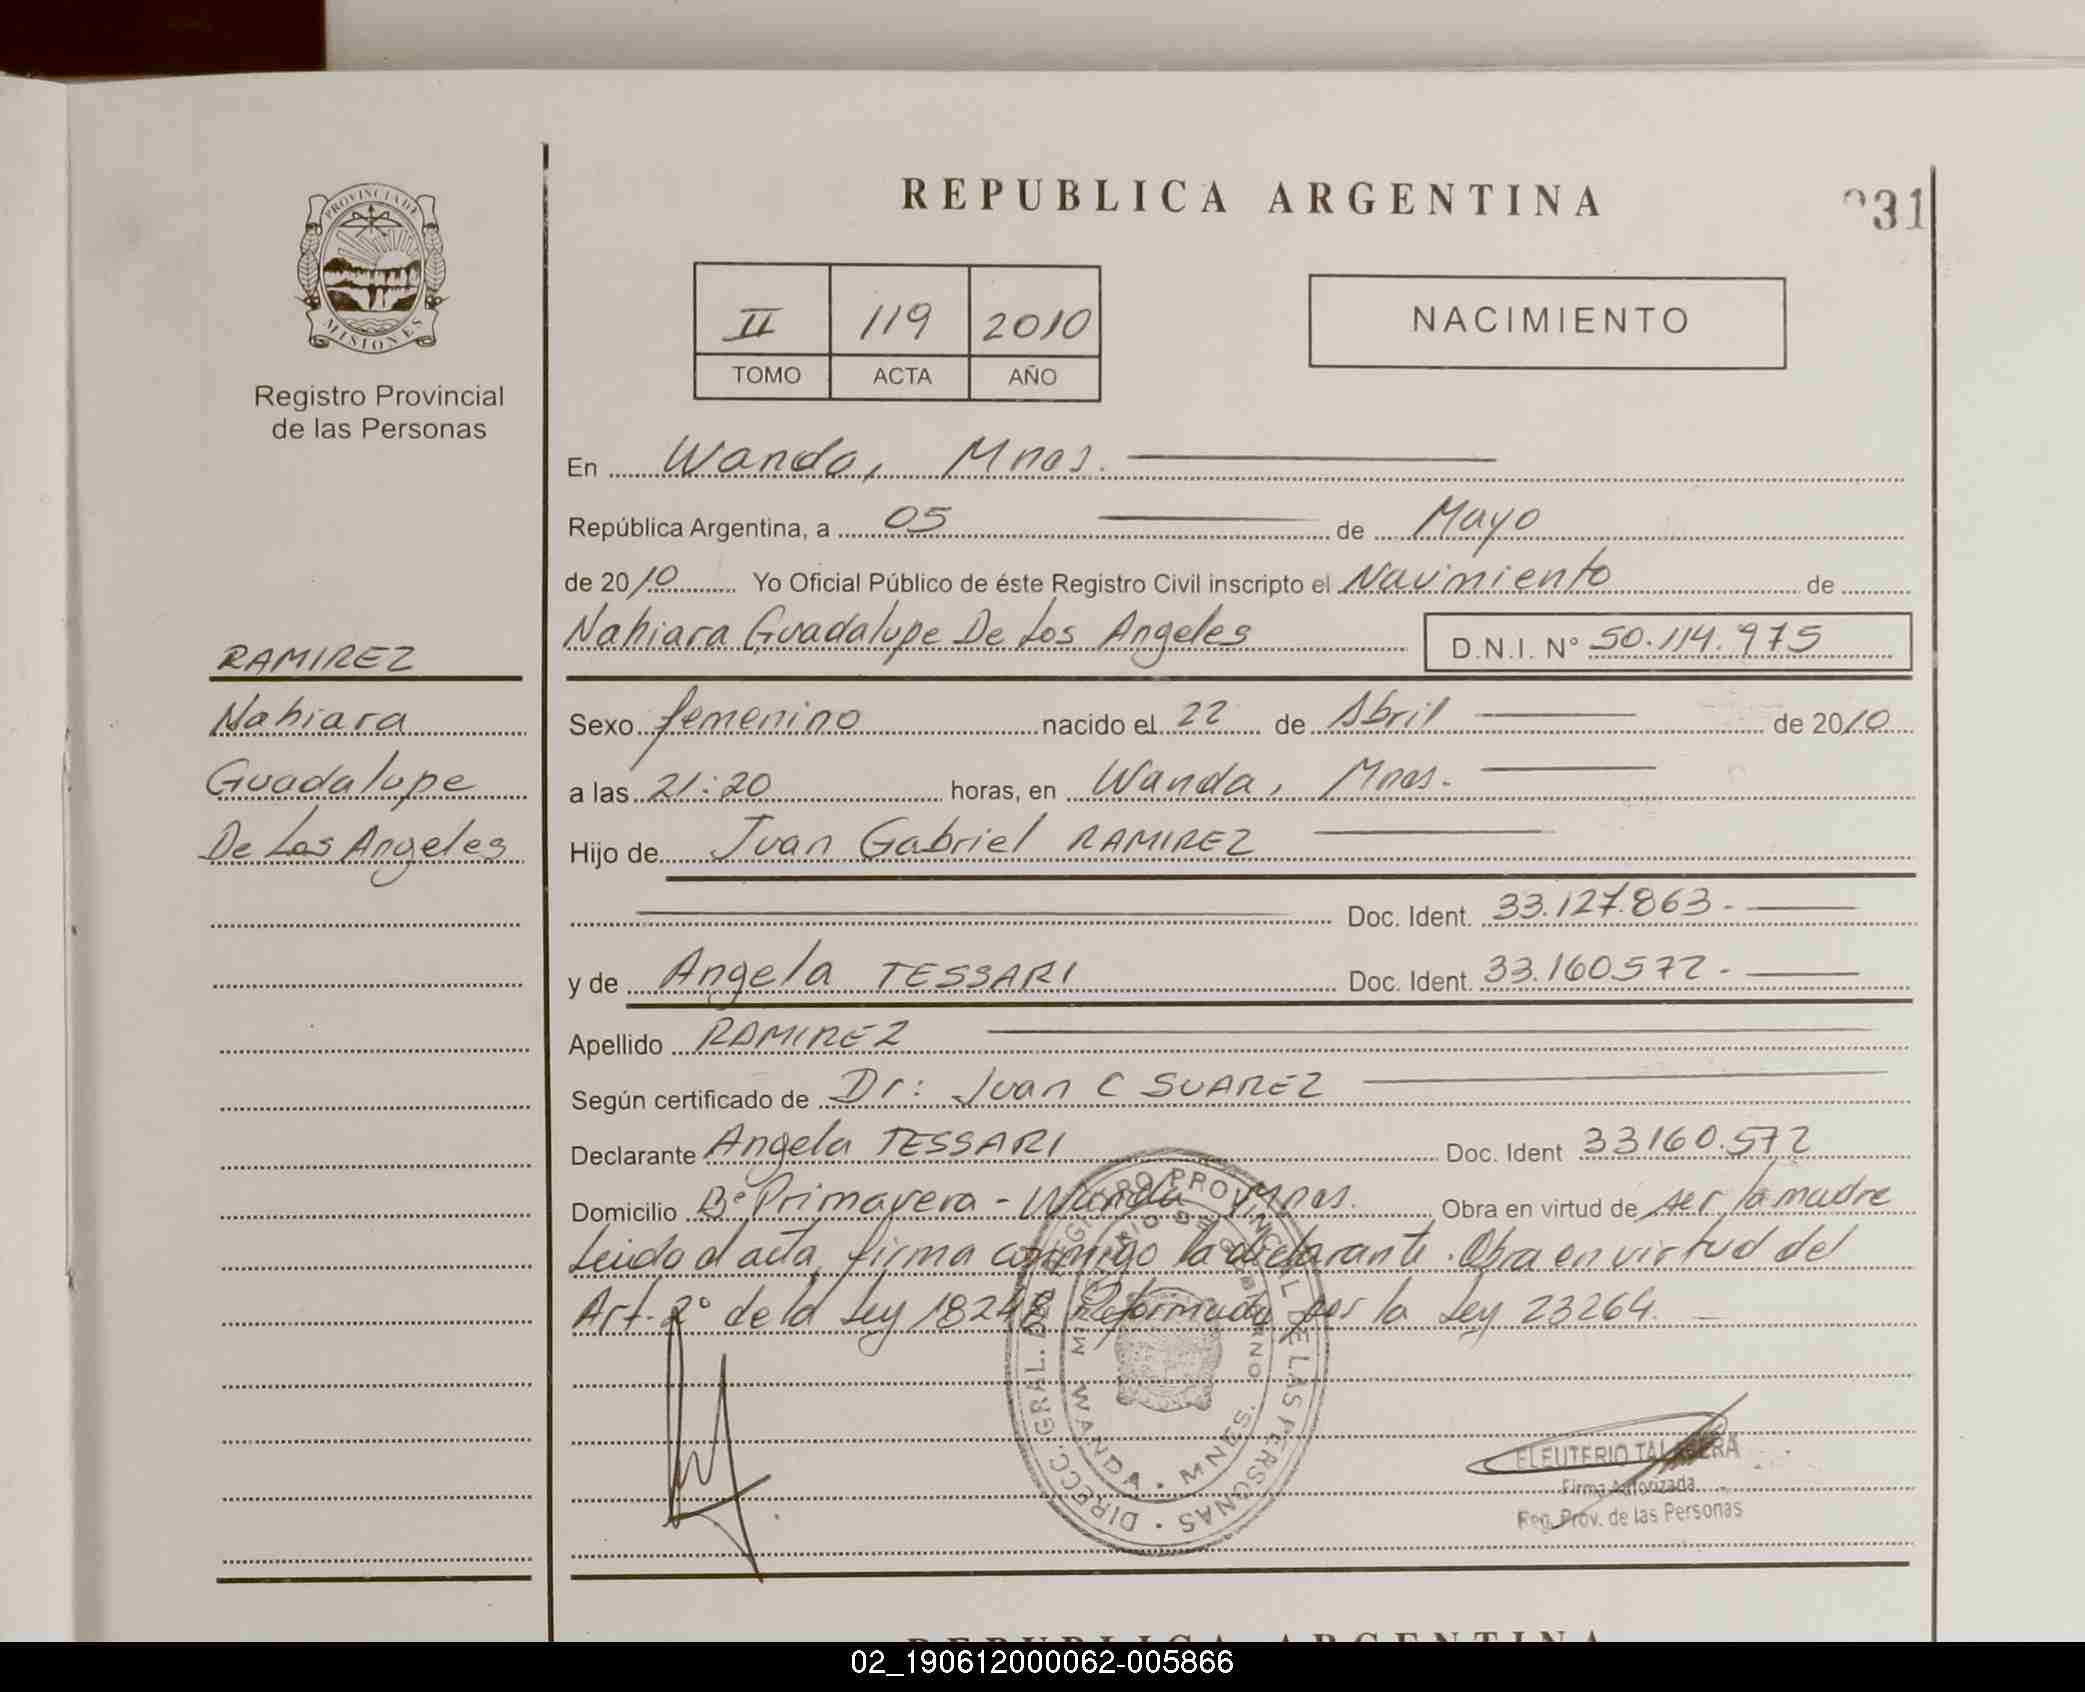 REPUBLICA ARGENTINA
31
PROVINCIA DE
MISIONES
Registro Provincial
de las Personas
II 119 2010
TOMO ACTA AÑO
NACIMIENTO
En Wanda, Mnes.
República Argentina, a 05 de Mayo
de 2010 Yo Oficial Público de éste Registro Civil inscripto el Nacimiento de
Nahiara Guadalupe De Los Angeles D.N.I. N° 50.114.975
RAMIREZ
Nahiara
Guadalupe
De Los Angeles
Sexo femenino nacido el 22 de Abril de 2010
a las 21:20 horas, en Wanda, Mnes.
Hijo de Juan Gabriel RAMIREZ
Doc. Ident. 33.127.863-
y de Angela TESSARI Doc. Ident. 33.160.572-
Apellido RAMIREZ
Según certificado de Dr: Juan C SUAREZ
Declarante Angela TESSARI Doc. Ident 33160.572
Domicilio B° Primavera - Wanda Mnes. Obra en virtud de ser la madre
Leido el acta, firma conmigo la declarante. Obra en virtud del
Art. 2° de la Ley 18248 Reformada por la Ley 23264.
DIRECC. GRAL. DEL REGISTRO PROVINCIAL DE LAS PERSONAS
MINISTERIO DE GOBIERNO
WANDA · MNES.
ELEUTERIO TALAVERA
Firma Autorizada
Reg. Prov. de las Personas
REPUBLICA ARGENTINA
02_190612000062-005866